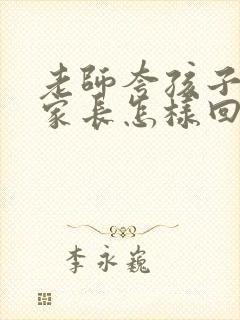 老師夸孩子
家長怎樣回
李永巍